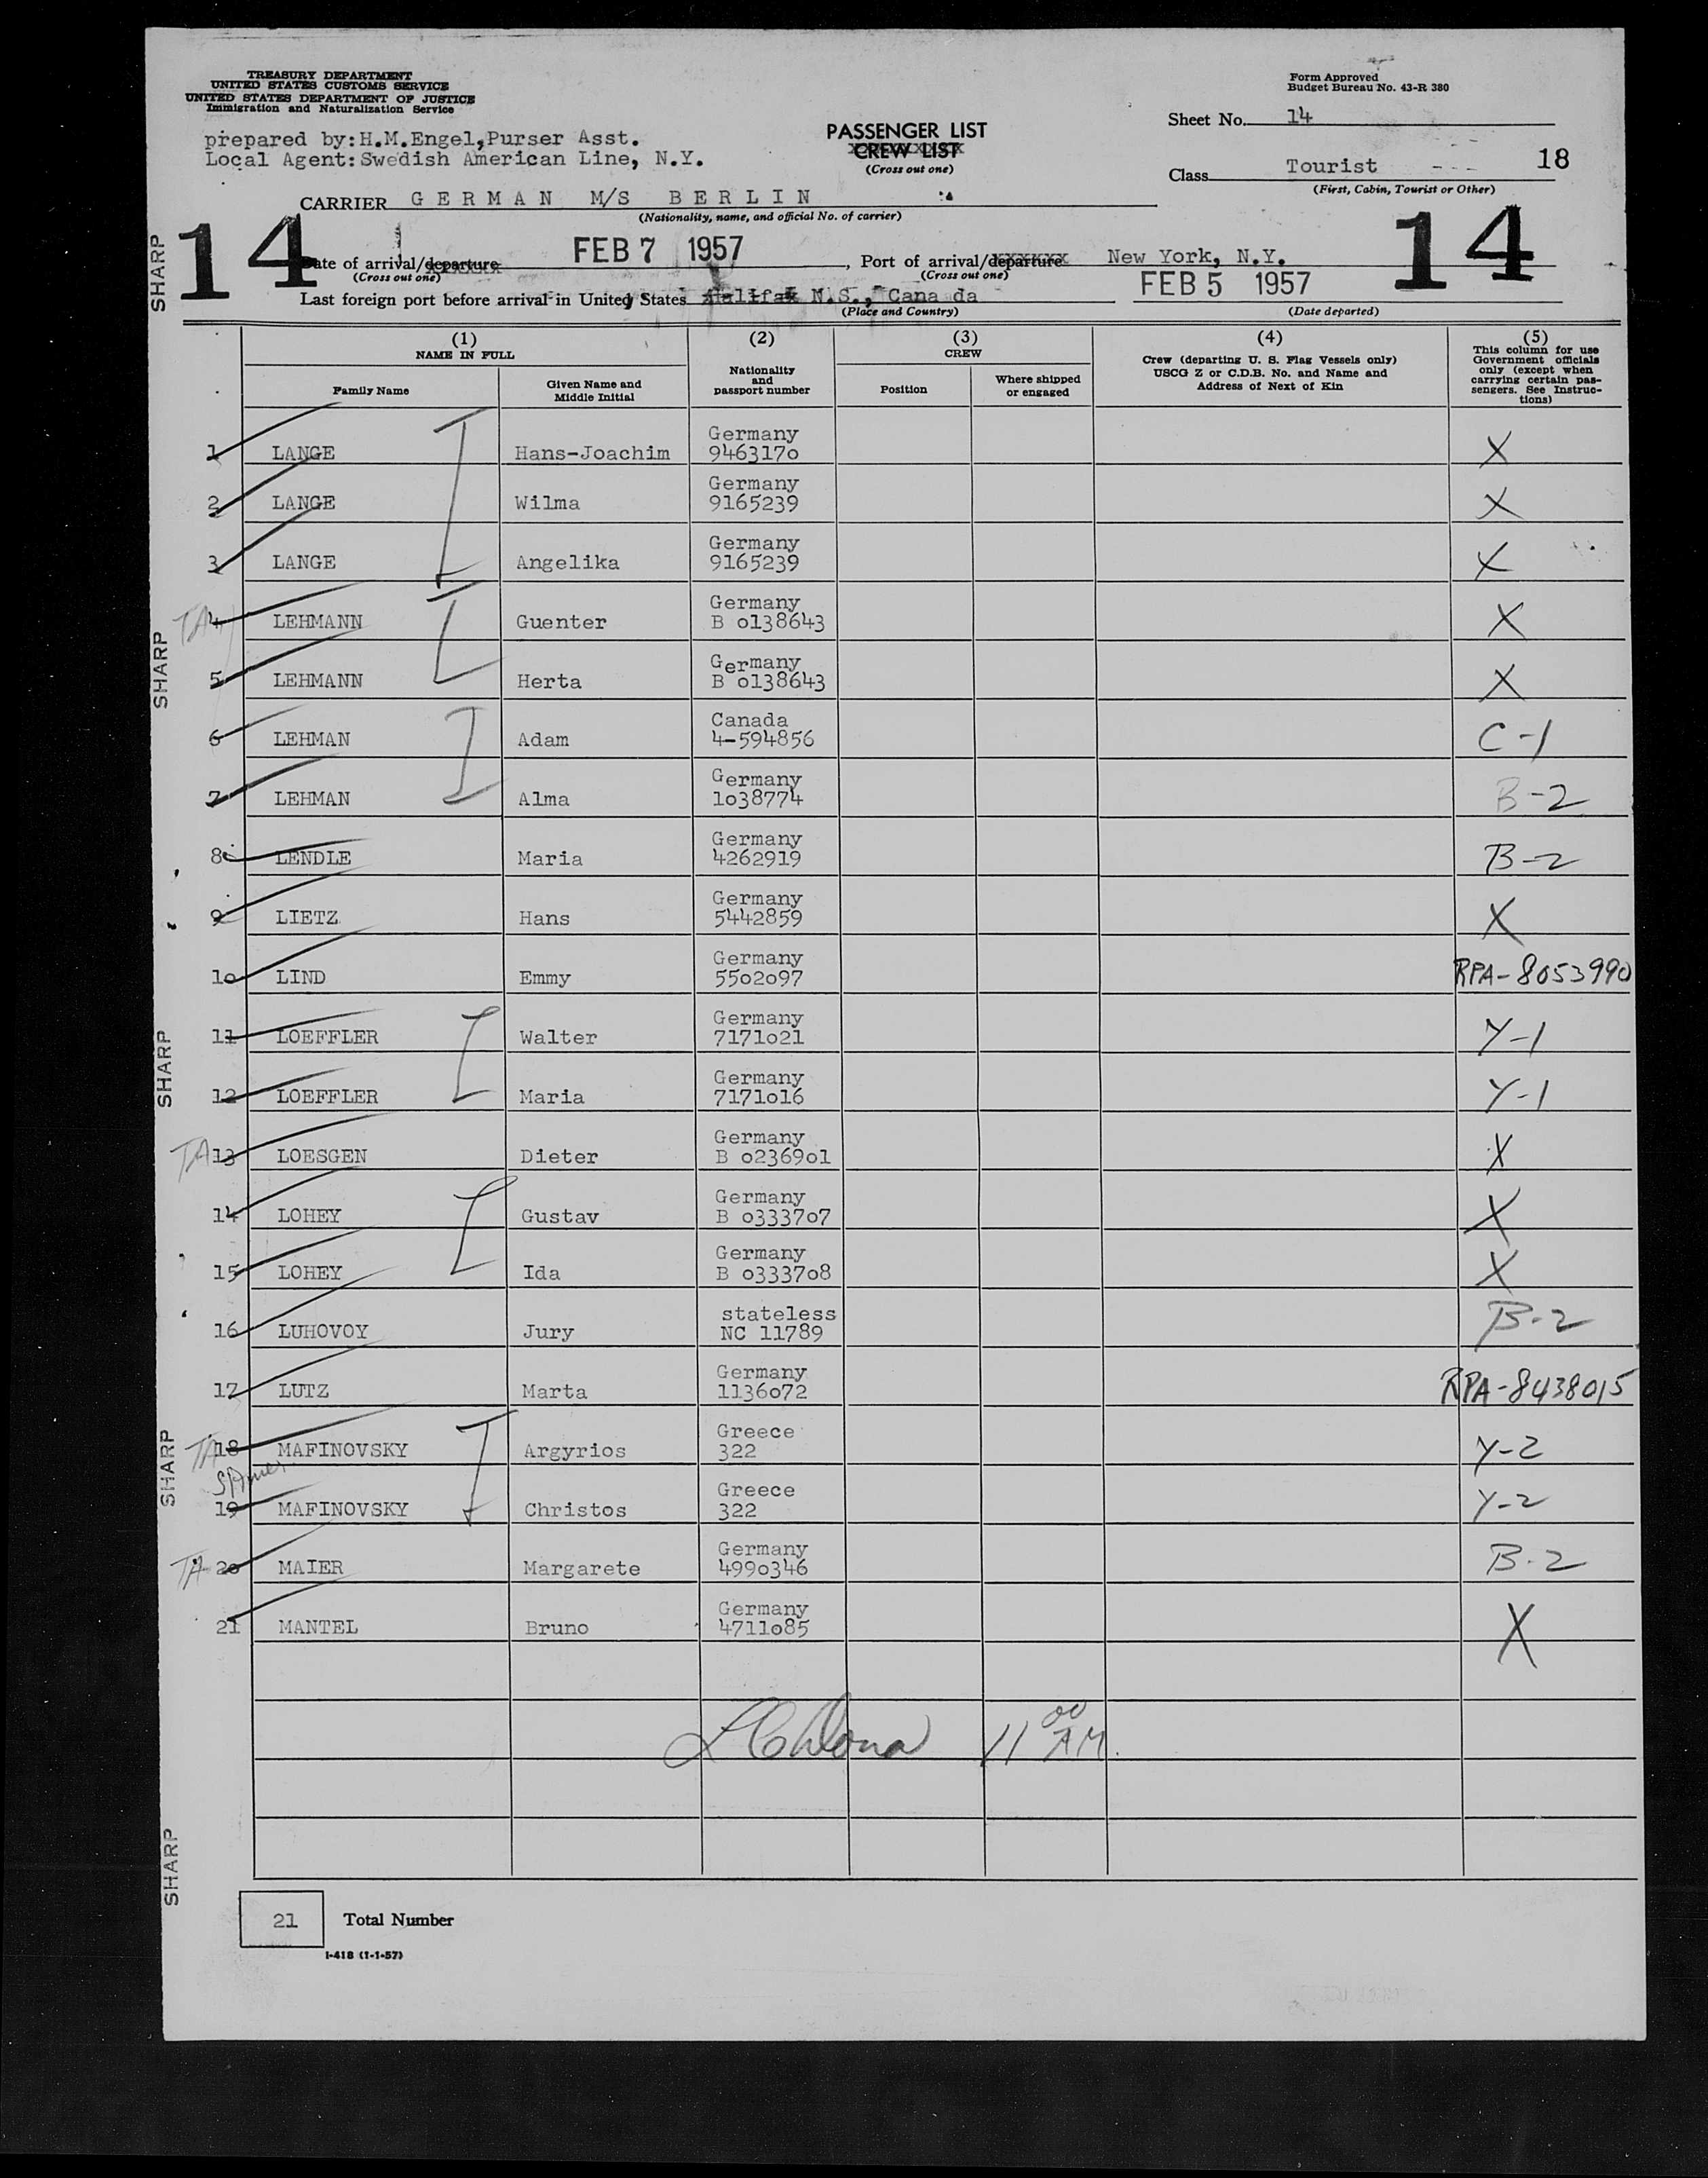 TREASURY DEPARTMENT
UNITED STATES CUSTOMS SERVICE
UNITED STATES DEPARTMENT OF JUSTICE
Immigration and Naturalization Service
Form Approved
Budget Bureau No. 43-R 380
prepared by:H.M.Engel,Purser Asst.
Local Agent:Swedish American Line, N.Y.
PASSENGER LIST
CREW LIST
(Cross out one)
Sheet No. 14
Class Tourist 18
(First, Cabin, Tourist or Other)
CARRIER GERMAN M/S BERLIN
(Nationality, name, and official No. of carrier)
14
Date of arrival/departure FEB 7 1957, Port of arrival/departure New York, N.Y.
(Cross out one) (Cross out one)
14
Last foreign port before arrival in United States Halifax N.S., Cana da FEB 5 1957
(Place and Country) (Date departed)
(1) (2) (3) (4) (5)
NAME IN FULL
Family Name
Given Name and Middle Initial
Nationality and passport number
CREW
Position
Where shipped or engaged
Crew (departing U. S. Flag Vessels only)
USCG Z or C.D.B. No. and Name and
Address of Next of Kin
This column for use
Government officials
only (except when
carrying certain pas-
sengers. See Instruc-
tions)
1 LANGE Hans-Joachim Germany 9463170 X
2 LANGE Wilma Germany 9165239 X
3 LANGE Angelika Germany 9165239 X
TA 4 LEHMANN Guenter Germany B 0138643 X
5 LEHMANN Herta Germany B 0138643 X
6 LEHMAN Adam Canada 4-594856 C-1
7 LEHMAN Alma Germany 1038774 B-2
8 LENDLE Maria Germany 4262919 B-2
9 LIETZ Hans Germany 5442859 X
10 LIND Emmy Germany 5502097 RPA-8053990
11 LOEFFLER Walter Germany 7171021 Y-1
12 LOEFFLER Maria Germany 7171016 Y-1
TA 13 LOESGEN Dieter Germany B 0236901 X
14 LOHEY Gustav Germany B 0333707 X
15 LOHEY Ida Germany B 0333708 X
16 LUHOVOY Jury stateless NC 11789 B-2
17 LUTZ Marta Germany 1136072 RPA-8438015
TA 18 MAFINOVSKY Argyrios Greece 322 Y-2
19 MAFINOVSKY Christos Greece 322 Y-2
TA 20 MAIER Margarete Germany 4990346 B-2
21 MANTEL Bruno Germany 4711085 X
11 00 AM
21 Total Number
I-418 (1-1-57)
SHARP
SHARP
SHARP
SHARP
SHARP